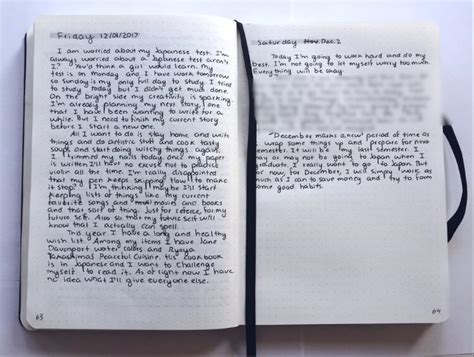 Friday 12/01/2017
I am worried about my Japanese test. I'm
always worried about a Japanese test aren't
I? You'd think a girl would learn. My
test is on Monday and I have work tomorrow
so Sunday is my only full day to study. I tried
to study today but I didn't get much done.
On the bright side my creativity is sparking.
I'm already planning my next story, one
that I have been wanting to write for a
while. But I need to finish my current story
before I start a new one.
All I want to do is stay home, and write
things and do artistic stuff and cook tasty
soups and start doing witchy things again.
I trimmed my nails today. Once my paper
is written I'll have no excuse not to practice
violin all the time. I'm really disappointed
that my pen keeps skipping. How to make
it stop? I'm thinking maybe I'll start
keeping lists of things like my current
favorite songs and movies and books
and that sort of thing. Just for reference, for my
future self. Also so that my future self will
know that I actually can spell.
This year I have a long and healthy
wish list. Among my items I have Jane
Davenport water colors and Ryoya
Takashima's Peaceful Cuisine. His cookbook
is in Japanese and I want to challenge
myself to read it. As of right now I have
no idea what I'll give everyone else.
63
Saturday Nov. Dec. 2
Today I'm going to work hard and do my
best. I'm not going to let myself worry too much.
Everything will be okay.
December marks a new period of time as
I wrap some things up and prepare for next
semester. It will be my last semester. I
may or may not be going to Japan when I
graduate. I really want to go to Japan. But
for now, for December, I will simply work as
much as I can to save money and try to form
some good habits.
64